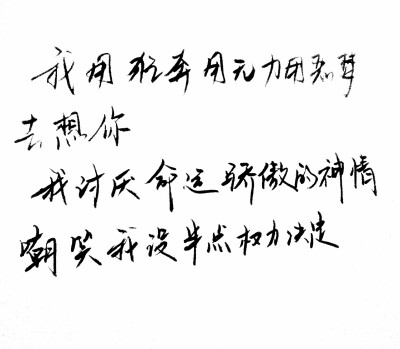 我用狂奔用无力用忍耐
去想你
我讨厌命运骄傲的神情
嘲笑我没半点权力决定